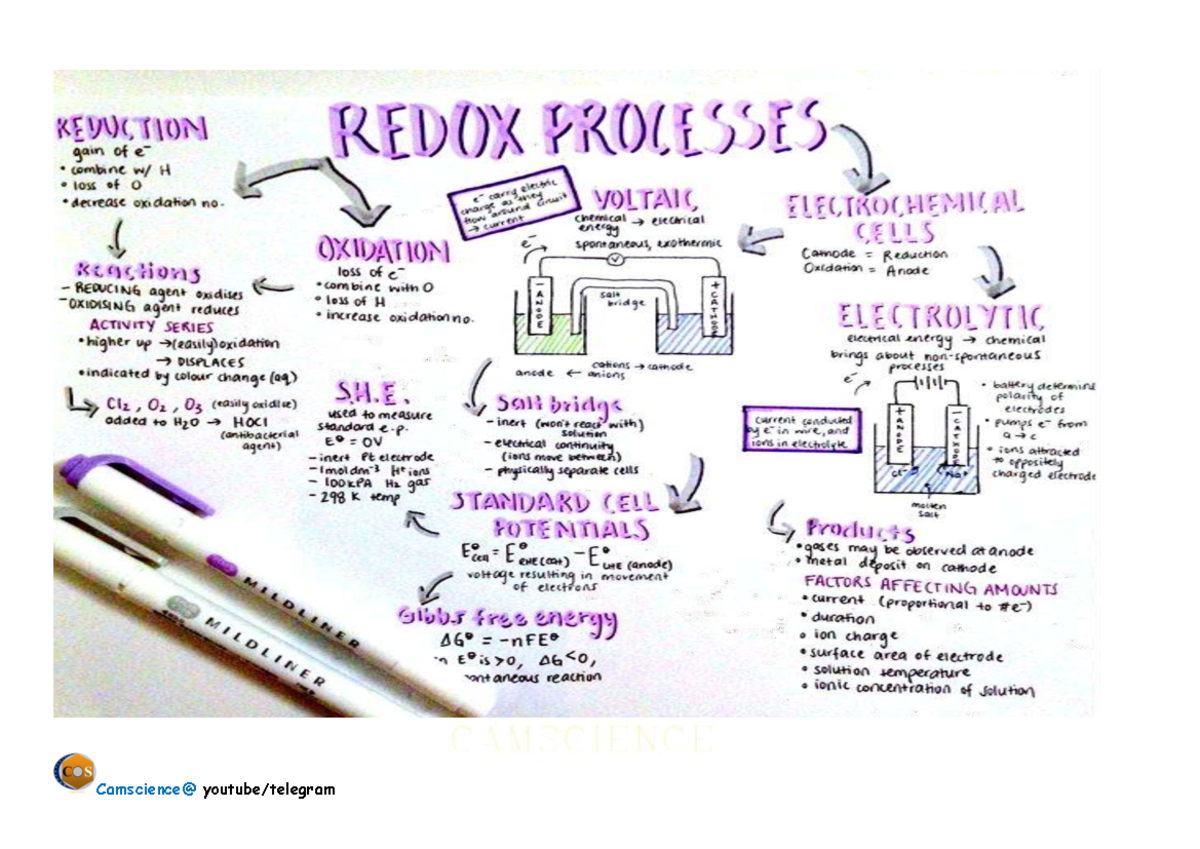 REDOX PROCESSES
REDUCTION
gain of e⁻
• combine w/ H
• loss of O
• decrease oxidation no.
Reactions
- REDUCING agent oxidises
- OXIDISING agent reduces
ACTIVITY SERIES
• higher up → (easily) oxidation
→ DISPLACES
• indicated by colour change (aq)
Cl₂, O₂, O₃ (easily oxidise)
added to H₂O → HOCl
(antibacterial
agent)
OXIDATION
loss of e⁻
• combine with O
• loss of H
• increase oxidation no.
S.H.E.
used to measure
standard e.p.
E⊖ = 0V
- inert Pt electrode
- 1mol dm⁻³ H⁺ ions
- 100kPA H₂ gas
- 298 K temp
e⁻ carry electric
charge as they
flow around circuit
→ current
VOLTAIC
chemical → electrical
energy
spontaneous, exothermic
e⁻
V
- ANODE
salt
bridge
+ CATHODE
cations → cathode
anode ← anions
Salt bridge
- inert (won't react with)
solution
- electrical continuity
(ions move between)
- physically separate cells
STANDARD CELL
POTENTIALS
E⊖cell = E⊖RHE (cat) - E⊖LHE (anode)
voltage resulting in movement
of electrons
Gibbs free energy
ΔG⊖ = -nFE⊖
E⊖ is >0, ΔG<0,
reaction
ELECTROCHEMICAL
CELLS
Cathode = Reduction
Oxidation = Anode
ELECTROLYTIC
electrical energy → chemical
brings about non-spontaneous
processes
e⁻
+ ANODE
- CATHODE
Cl⁻
Na⁺
molten
salt
current conducted
by e⁻ in wire, and
ions in electrolyte
• battery determins
polarity of
electrodes
• pumps e⁻ from
a → c
• ions attracted
to oppositely
charged electrode
Products
• gases may be observed at anode
• metal deposit on cathode
FACTORS AFFECTING AMOUNTS
• current (proportional to #e⁻)
• duration
• ion charge
• surface area of electrode
• solution temperature
• ionic concentration of solution
MILDLINER
MILDLINER
CAMSCIENCE
COS
Camscience@ youtube/telegram